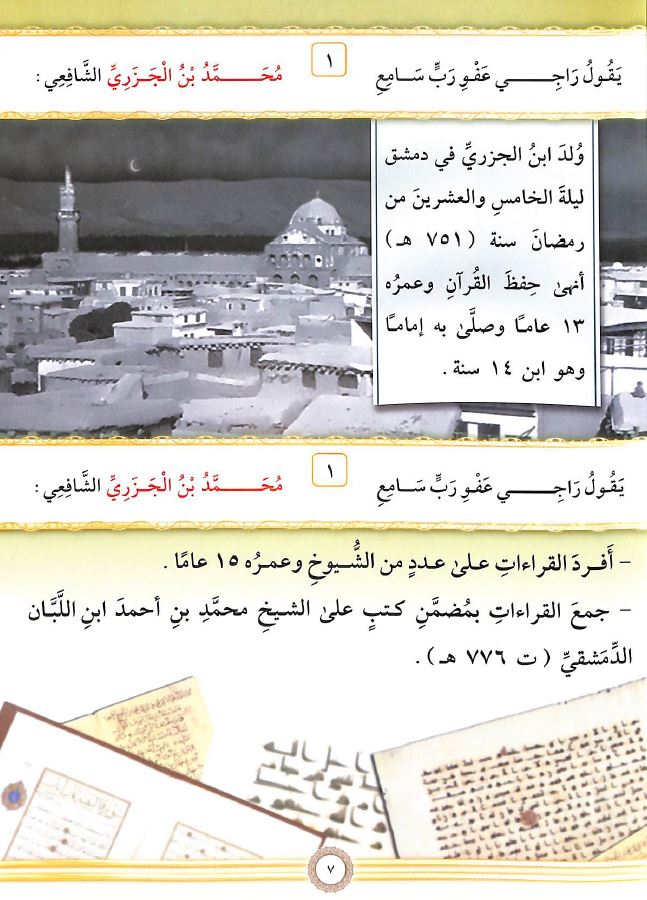 يَقُولُ رَاجِـــــي عَفْوِ رَبٍّ سَـامِعِ ١ مُحَـــــمَّدُ بْنُ الْجَـزَرِيِّ الشَّافِعِي :
وُلدَ ابنُ الجزريِّ في دمشق
ليلةَ الخامسِ والعشرينَ من
رمضانَ سنة ( ٧٥١ هـ )
أنهىٰ حِفظَ القُرآنِ وعمرُه
١٣ عامـًا وصلَّىٰ به إمامـًا
وهو ابن ١٤ سنة .
يَقُولُ رَاجِـــــي عَفْوِ رَبٍّ سَـامِعِ ١ مُحَـــــمَّدُ بْنُ الْجَـزَرِيِّ الشَّافِعِي :
– أَفـردَ القراءاتِ علىٰ عددٍ من الشُّيوخِ وعمـرُه ١٥ عامًا .
– جمعَ القراءاتِ بمُضمَّنِ كتبٍ علىٰ الشيخِ محمَّدِ بنِ أحمدَ ابنِ اللَّبَّان
الدِّمَشقيِّ ( ت ٧٧٦ هـ ) .
٧